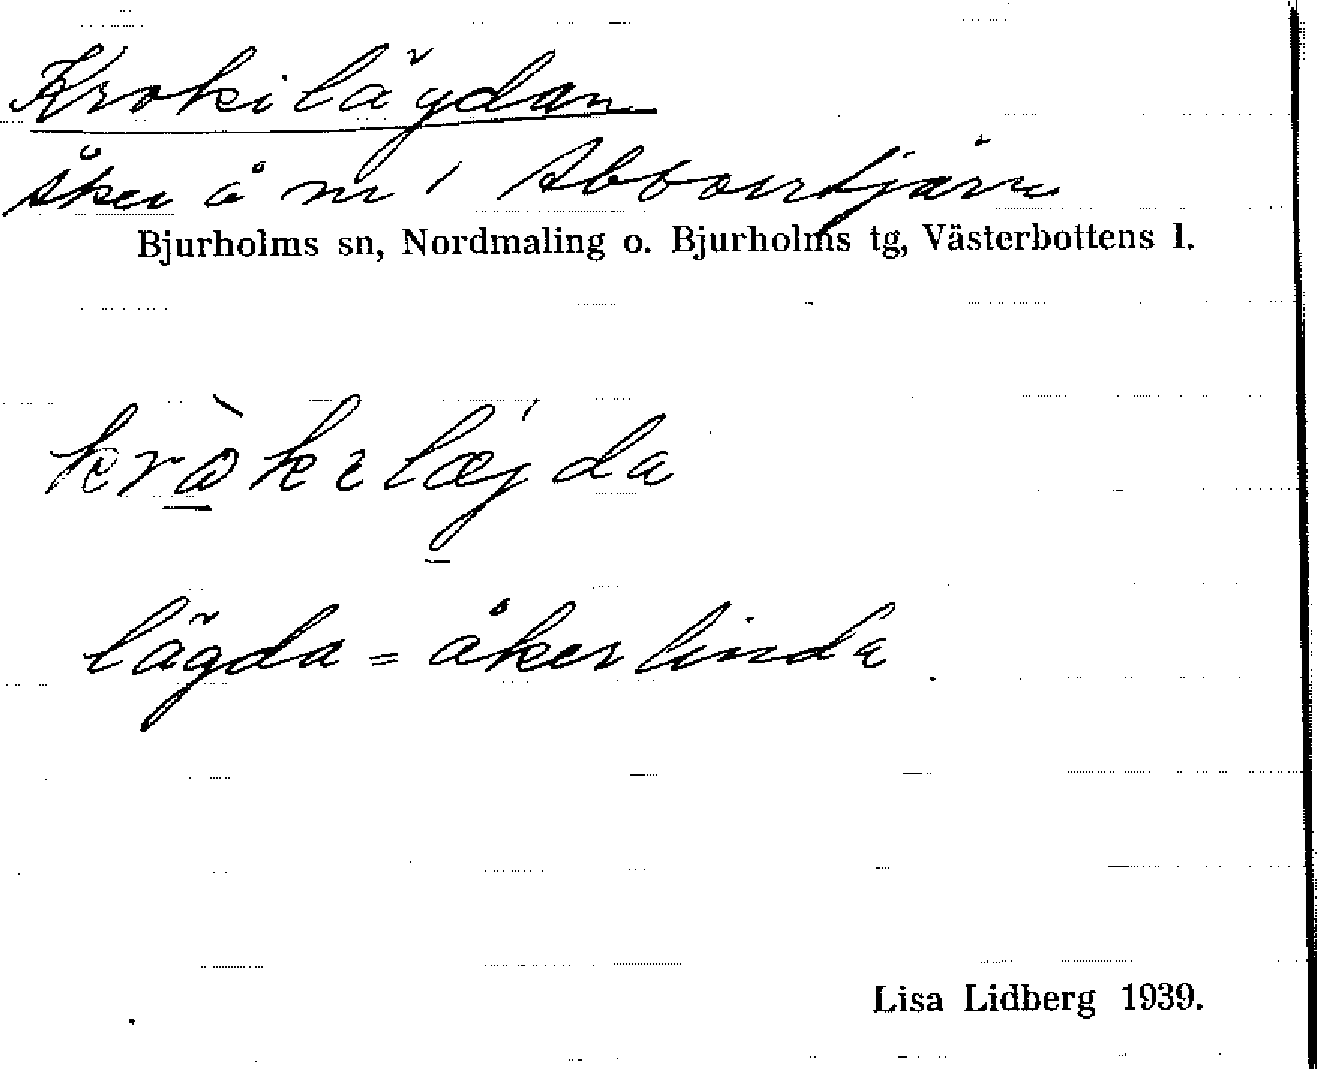 Krokilägdan
Åker å nr 1 Abborrtjärn
Bjurholms sn, Nordmaling o. Bjurholms tg, Västerbottens l.
kròkɩlǽjda
lägda = åkerlinda
Lisa Lidberg 1939.